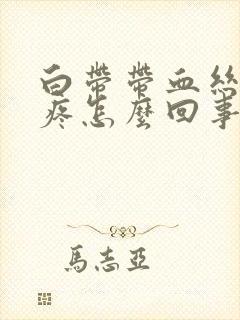 白帶帶血絲
疼怎麼回事
馬志亞